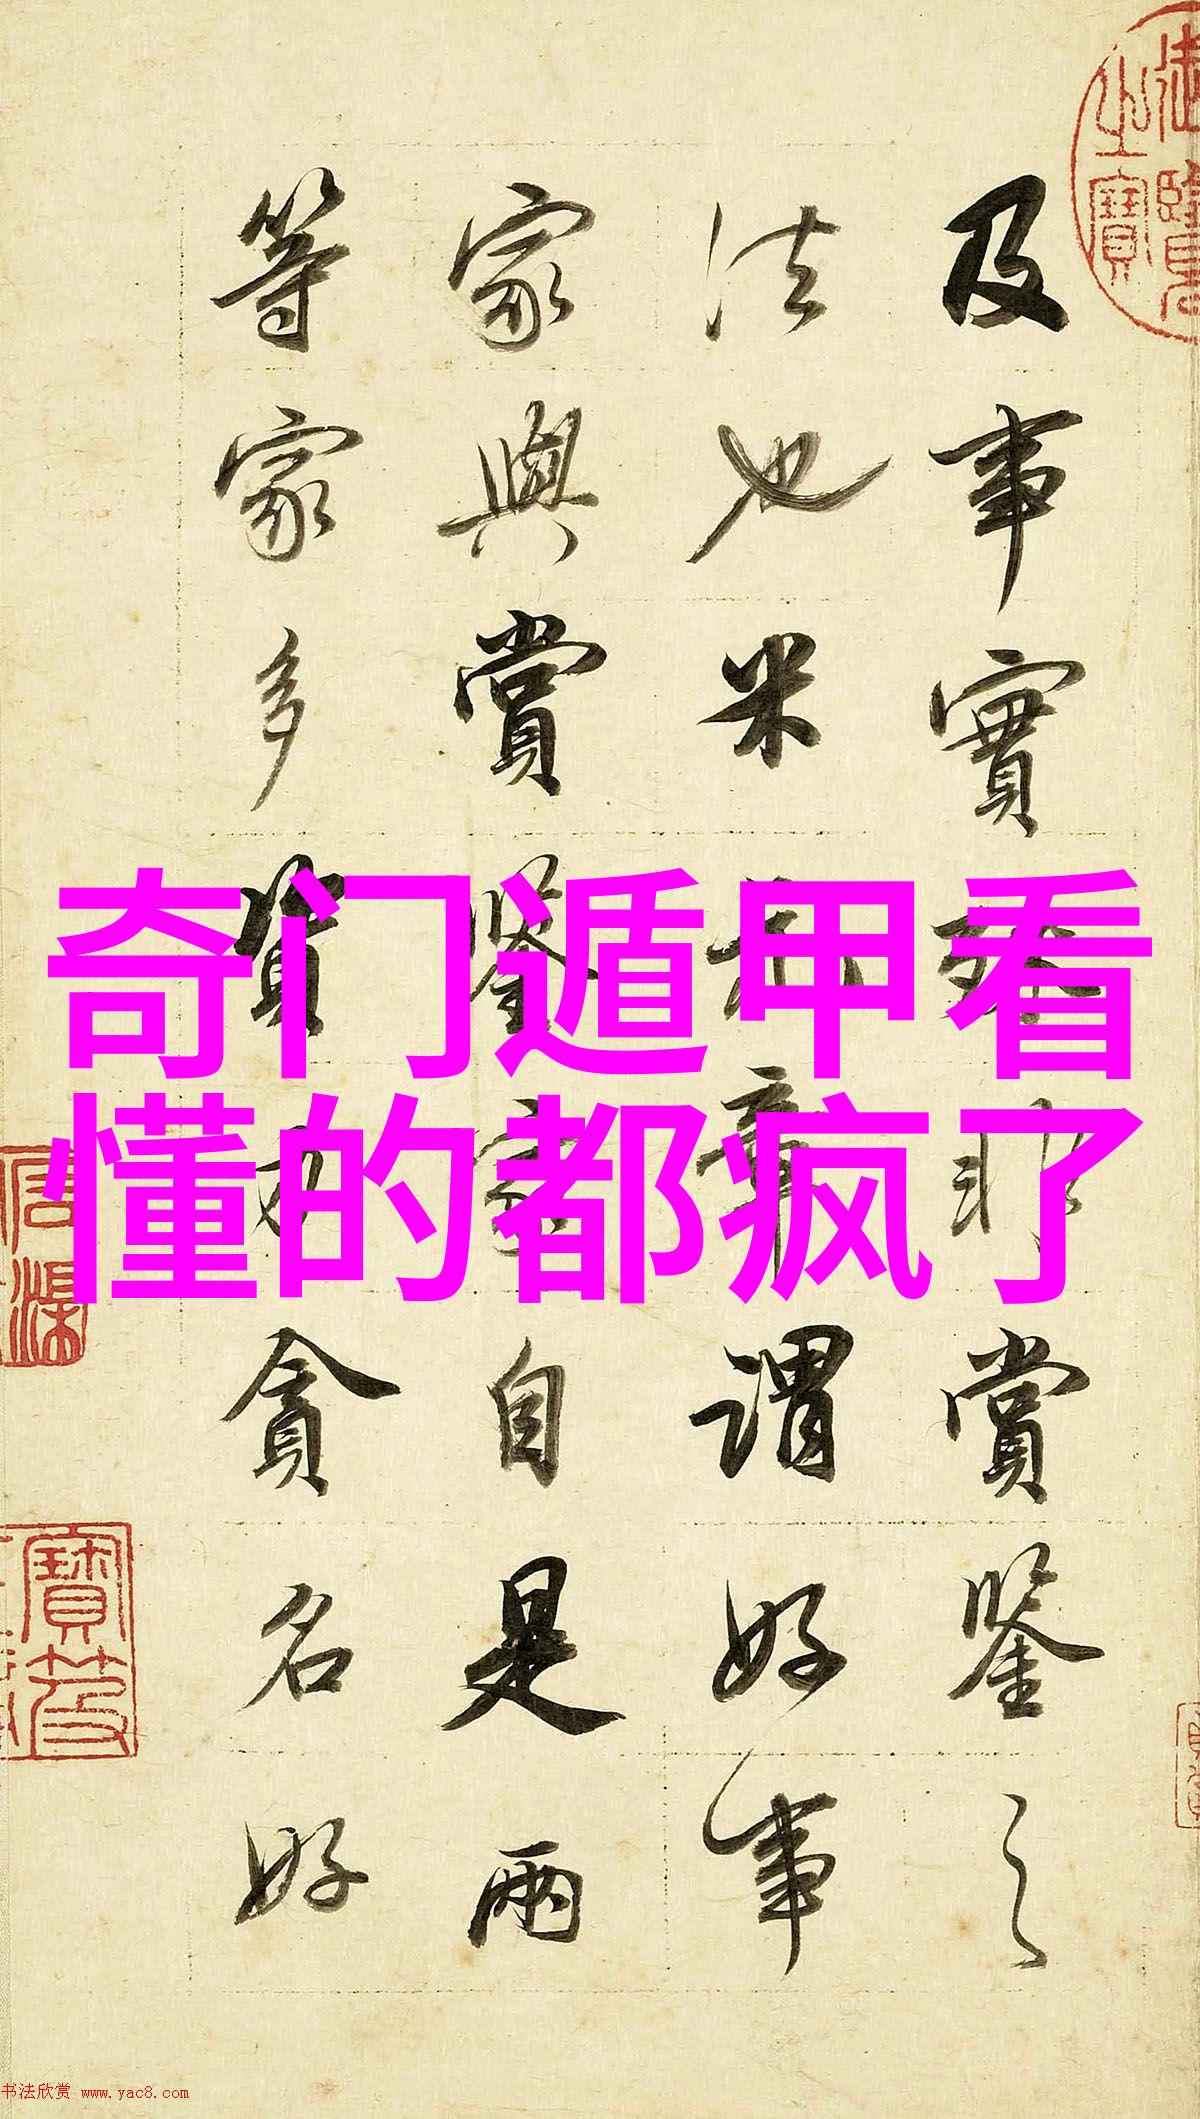 及事實殊非賞鑒之
法也米元章謂好事
家與賞鑒家自是兩
等家多資力貪名好
奇门遁甲看
懂的都疯了
书法欣赏 www.yac8.com